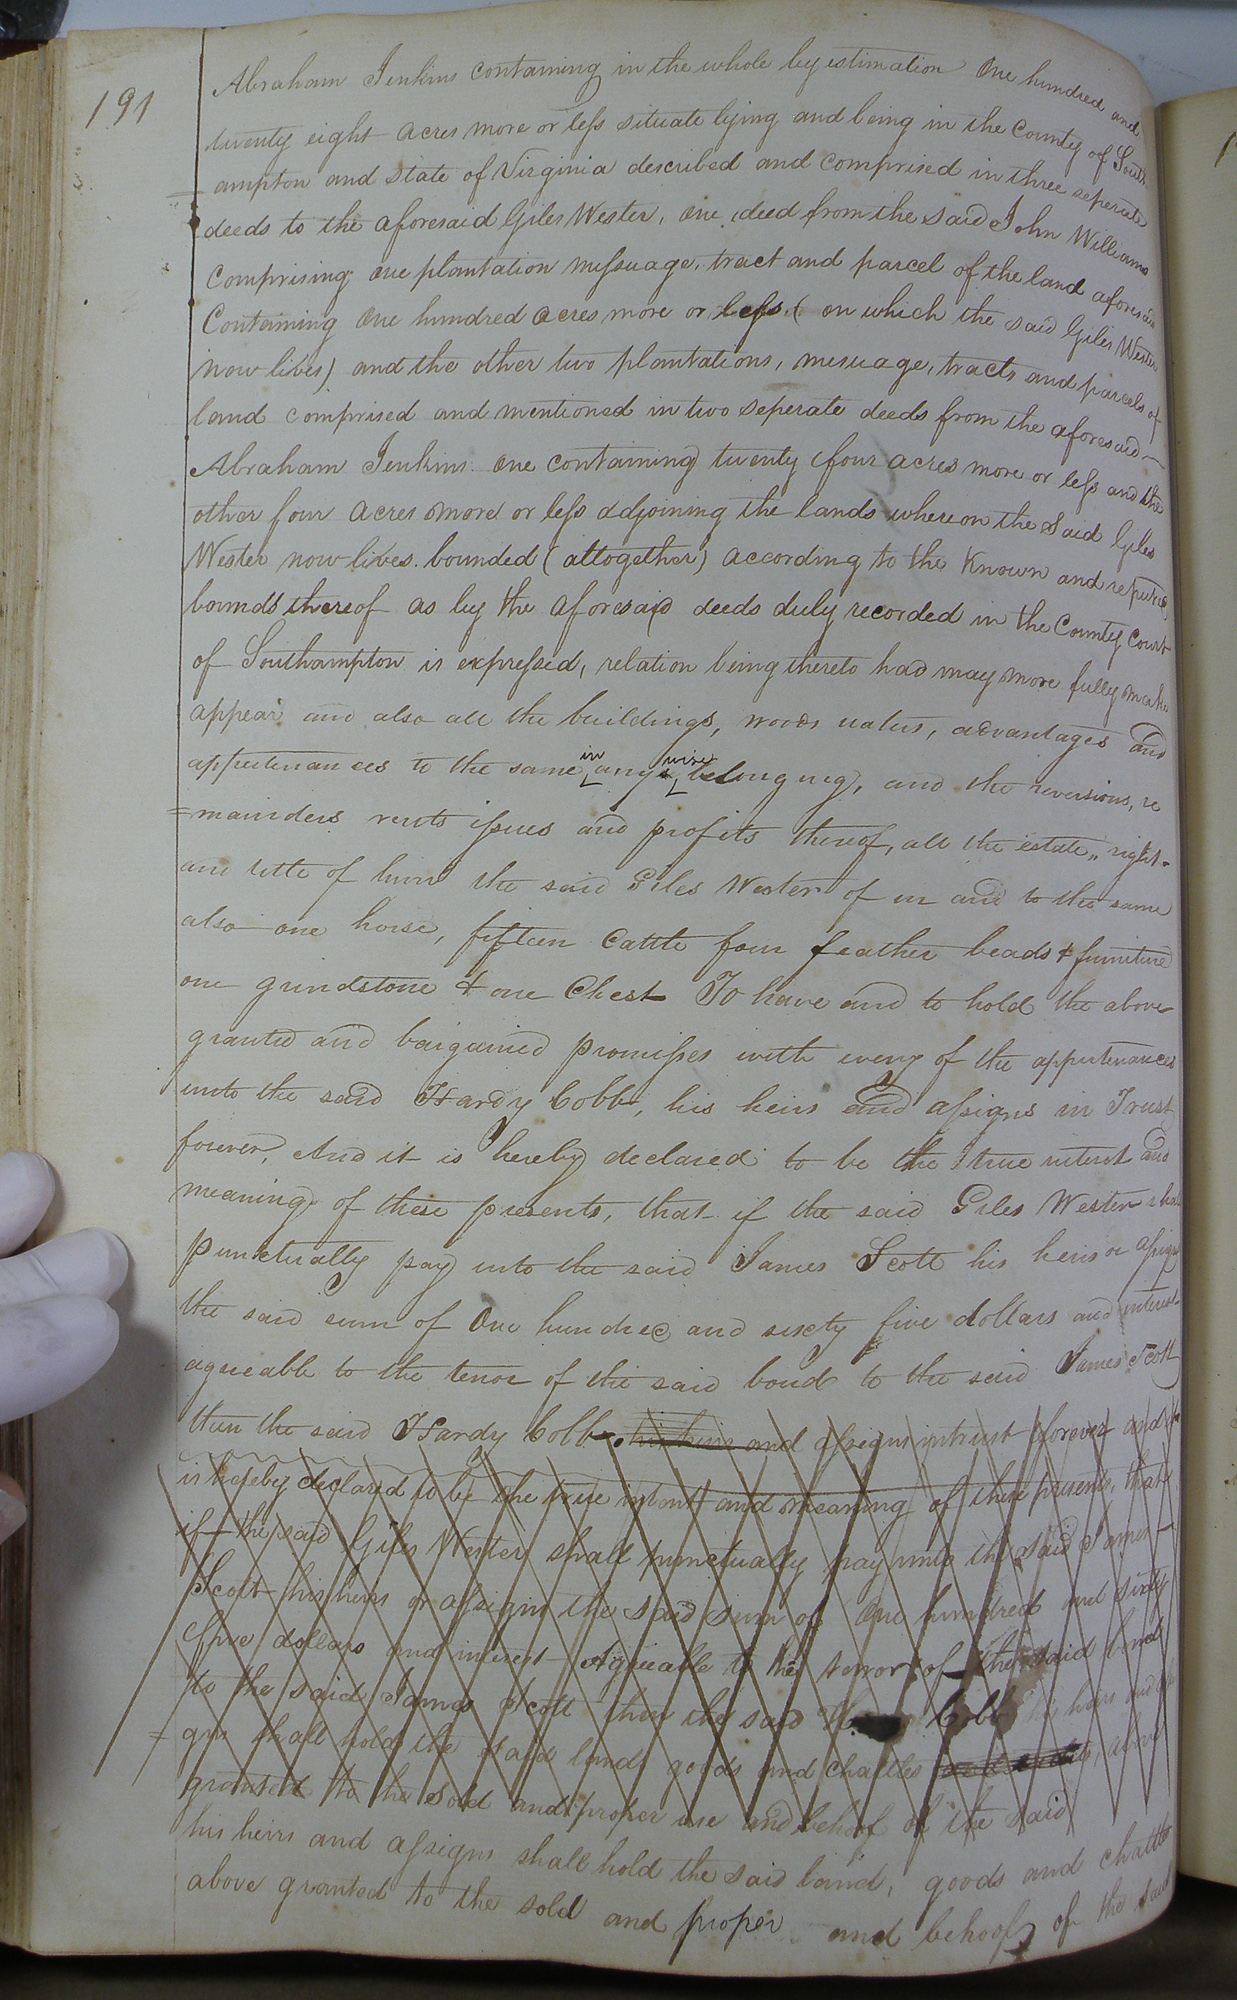 191
Abraham Jenkins containing in the whole by estimation One hundred and
twenty eight acres more or less situate lying and being in the County of South
ampton and State of Virginia described and comprised in three seperate
deeds to the aforesaid Giles Wester, one deed from the said John Williams
Comprising one plantation messuage, tract and parcel of the land aforesaid
Containing One hundred acres more or less, (on which the said Giles Wester
now lives) and the other two plantations, mesuage, tracts and parcels of
land comprised and mentioned in two seperate deeds from the aforesaid
Abraham Jenkins one containing twenty four acres more or less and the
other four acres more or less adjoining the lands whereon the said Giles
Wester now lives. bounded (alltogether) according to the known and reputed
bounds thereof as by the aforesaid deeds duly recorded in the County Court
of Southampton is expressed, relation being thereto had may more fully make
appear and also all the buildings, woods waters, advantages and
appurtenances to the same in any wise belonging, and the reversions, re
=mainders rents issues and profits thereof, all the estate,, right
and title of him the said Giles Wester of in and to the same
also one horse, fifteen Cattle four feather beads & furniture
one grindstone & one Chest To have and to hold the above
granted and bargained promisses with every of the appurtenances
unto the said Hardy Cobb, his heirs and assigns in Trust
forever, And it is hereby declared to be the true interst and
meaning of these presents, that if the said Giles Wester shall
punctually pay unto the said James Scott his heirs or assigns
the said sum of One hundred and sixty five dollars and interest
agreeable to the tenor of the said bond to the said James Scott
then the said Hardy Cobb his heirs and assigns intrust forever and it
is hereby declared to be the true intent and meaning of these presents, that
if the said Giles Wester shall punctually pay unto the said James
Scott his heirs or assigns the said sum of One hundred and sixty
five dollars and interest Agreeable to the tenor of the said bond
to the said James Scott then the said Cobb his heirs and
= gns shall hold the said land goods and chattles above
granted to the Sold and proper use and behoof of the said
his heirs and assigns shall hold the said land, goods and chattles
above granted to the sold and proper and behoof of the said